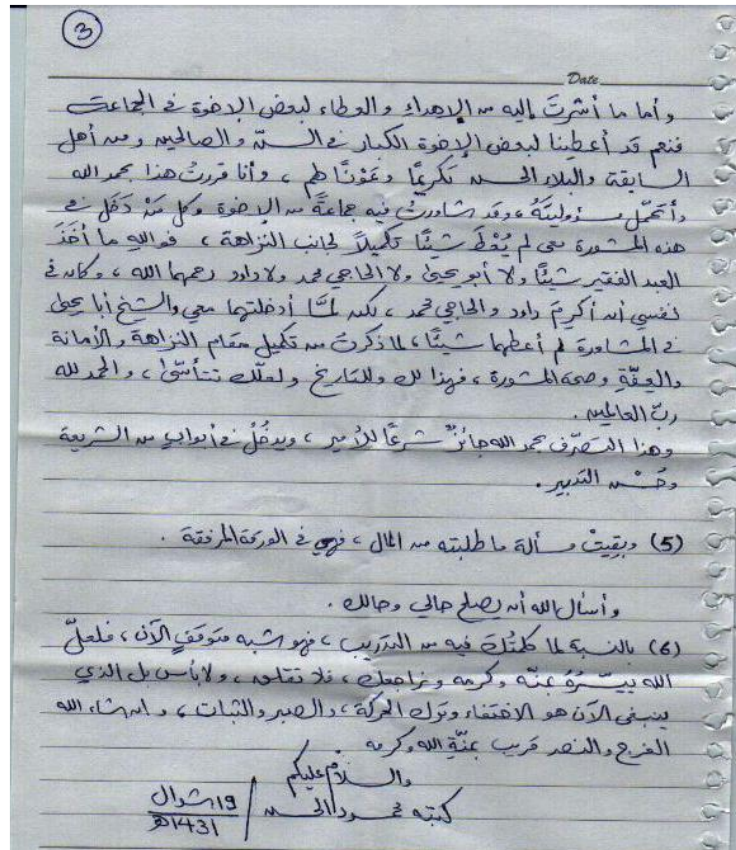 3
Date
وأما ما أشرتَ إليه من الإهداء والعطاء لبعض الإخوة في الجماعة
فنعم قد أعطينا لبعض الإخوة الكبار في السنّ والصالحين ومن أهل
السابقة والبلاء الحسن تكريمًا وعَوْنًا لهم ، وأنا قررتُ هذا بحمد الله
وأتحمّل مسؤوليتَهُ، وقد شاورتُ فيه جماعةً من الإخوة وكل مَنْ دَخَل في
هذه المشورة معي لم يُعْطَ شيئًا تكميلاً لجانب النزاهة ، فوالله ما أخَذَ
العبد الفقير شيئًا ولا أبو يحيى ولا الحاجي محمد ولا داود رحمهما الله ، وكان في
نفسي أن أكرِمَ داود والحاجي محمد ، لكن لمَّا أدخلتهما معي والشيخ أبا يحيى
في المشاورة لم أعطهما شيئًا ، لما ذكرتُ من تكميل مقام النزاهة والأمانة
والعِفّةِ وصحة المشورة ، فهذا لك وللتاريخ ولعلّك تتأسّى ، والحمد لله
ربّ العالمين .
وهذا التصَرّف بحمد الله جائزٌ شرعًا للأمير ، ويدخُلُ في أبوابٍ من الشريعة
وحُسْن التدبير .
(5) وبقِيتْ مسألة ما طلبته من المال ، فهي في الورقة المرفقة .
وأسأل الله أن يصلح حالي وحالك .
(6) بالنسبة لما كلمتُكَ فيه من التدريب ، فهو شبه متوقفٍ الآن ، فلعلّ
الله ييسّرُهُ بمنّه وكرمه ونراجعك ، فلا تقلق ، ولا بأس بل الذي
ينبغي الآن هو الاختفاء وترك الحركة ، والصبر والثبات ، وإن شاء الله
الفرج والنصر قريب بمنّةِ الله وكرمه
والسلام عليكم
كتبه محمود الحسن / 19 شوال
1431هـ